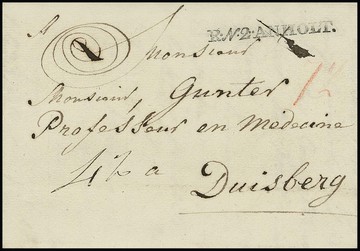 R.N.2.ANHOLT.
Monsieur
Monsieur, Gunter
Professeur en Medecine
a
Duisberg